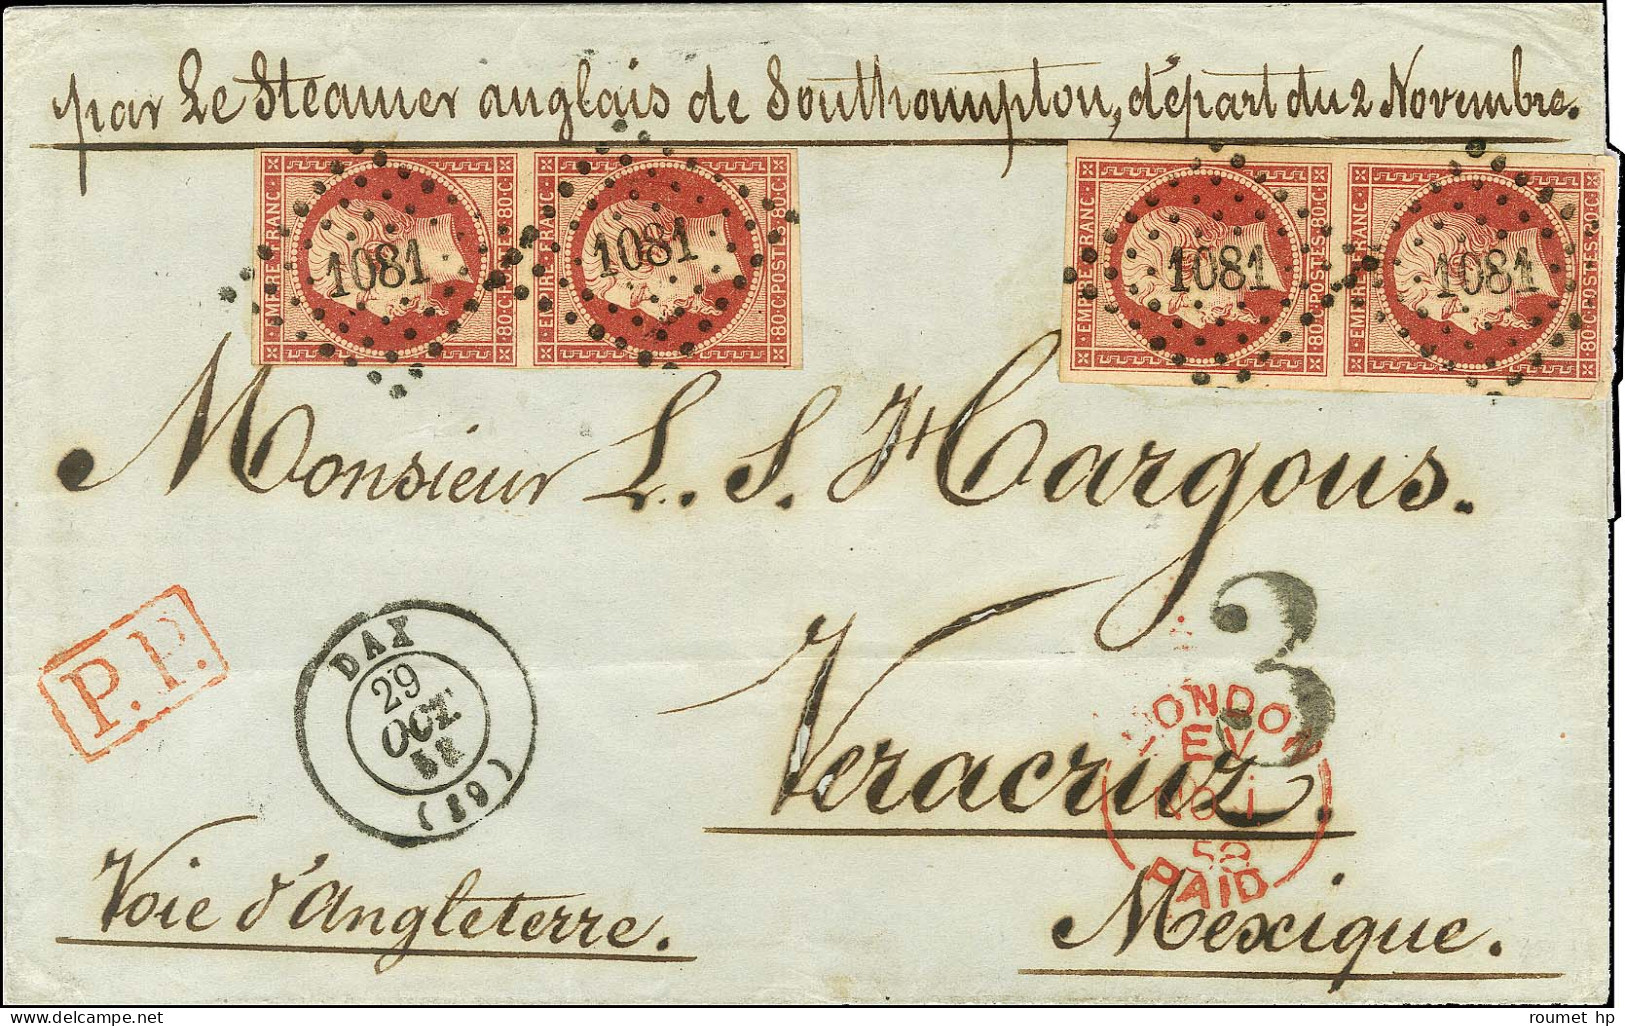 par Le Steamer anglais de Southampton, départ du 2 Novembre.
EMPIRE FRANC 80.C.POSTES.80.C
1081
EMPIRE FRANC 80.C.POSTES.80.C
1081
EMPIRE FRANC 80.C.POSTES.80.C
1081
EMPIRE FRANC 80.C.POSTES.80.C
1081
Monsieur L. S. Hargous.
P.P.
DAX
29
OCT.
58
(39)
3
Veracruz.
LONDON
EV
NO 1
58
PAID
Voie d'Angleterre.
Mexique.
roumet hp